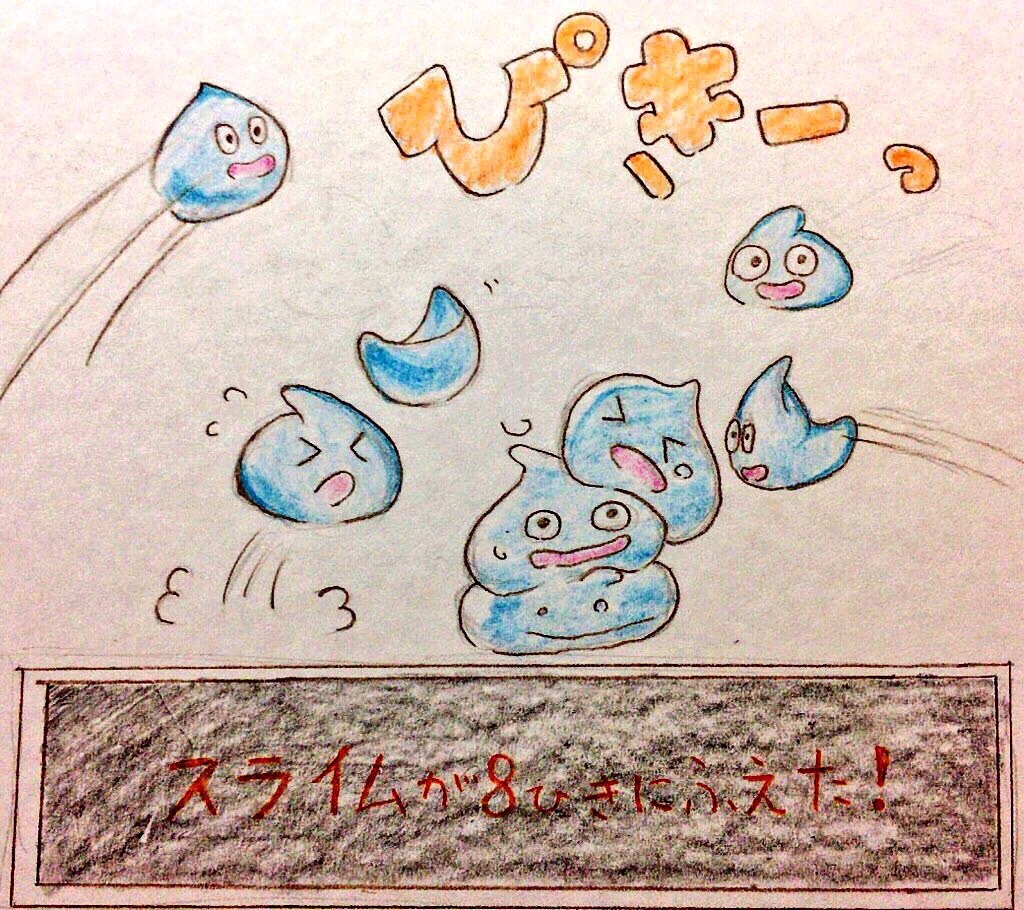 ぴきーっ
スライムが8ひきにふえた!